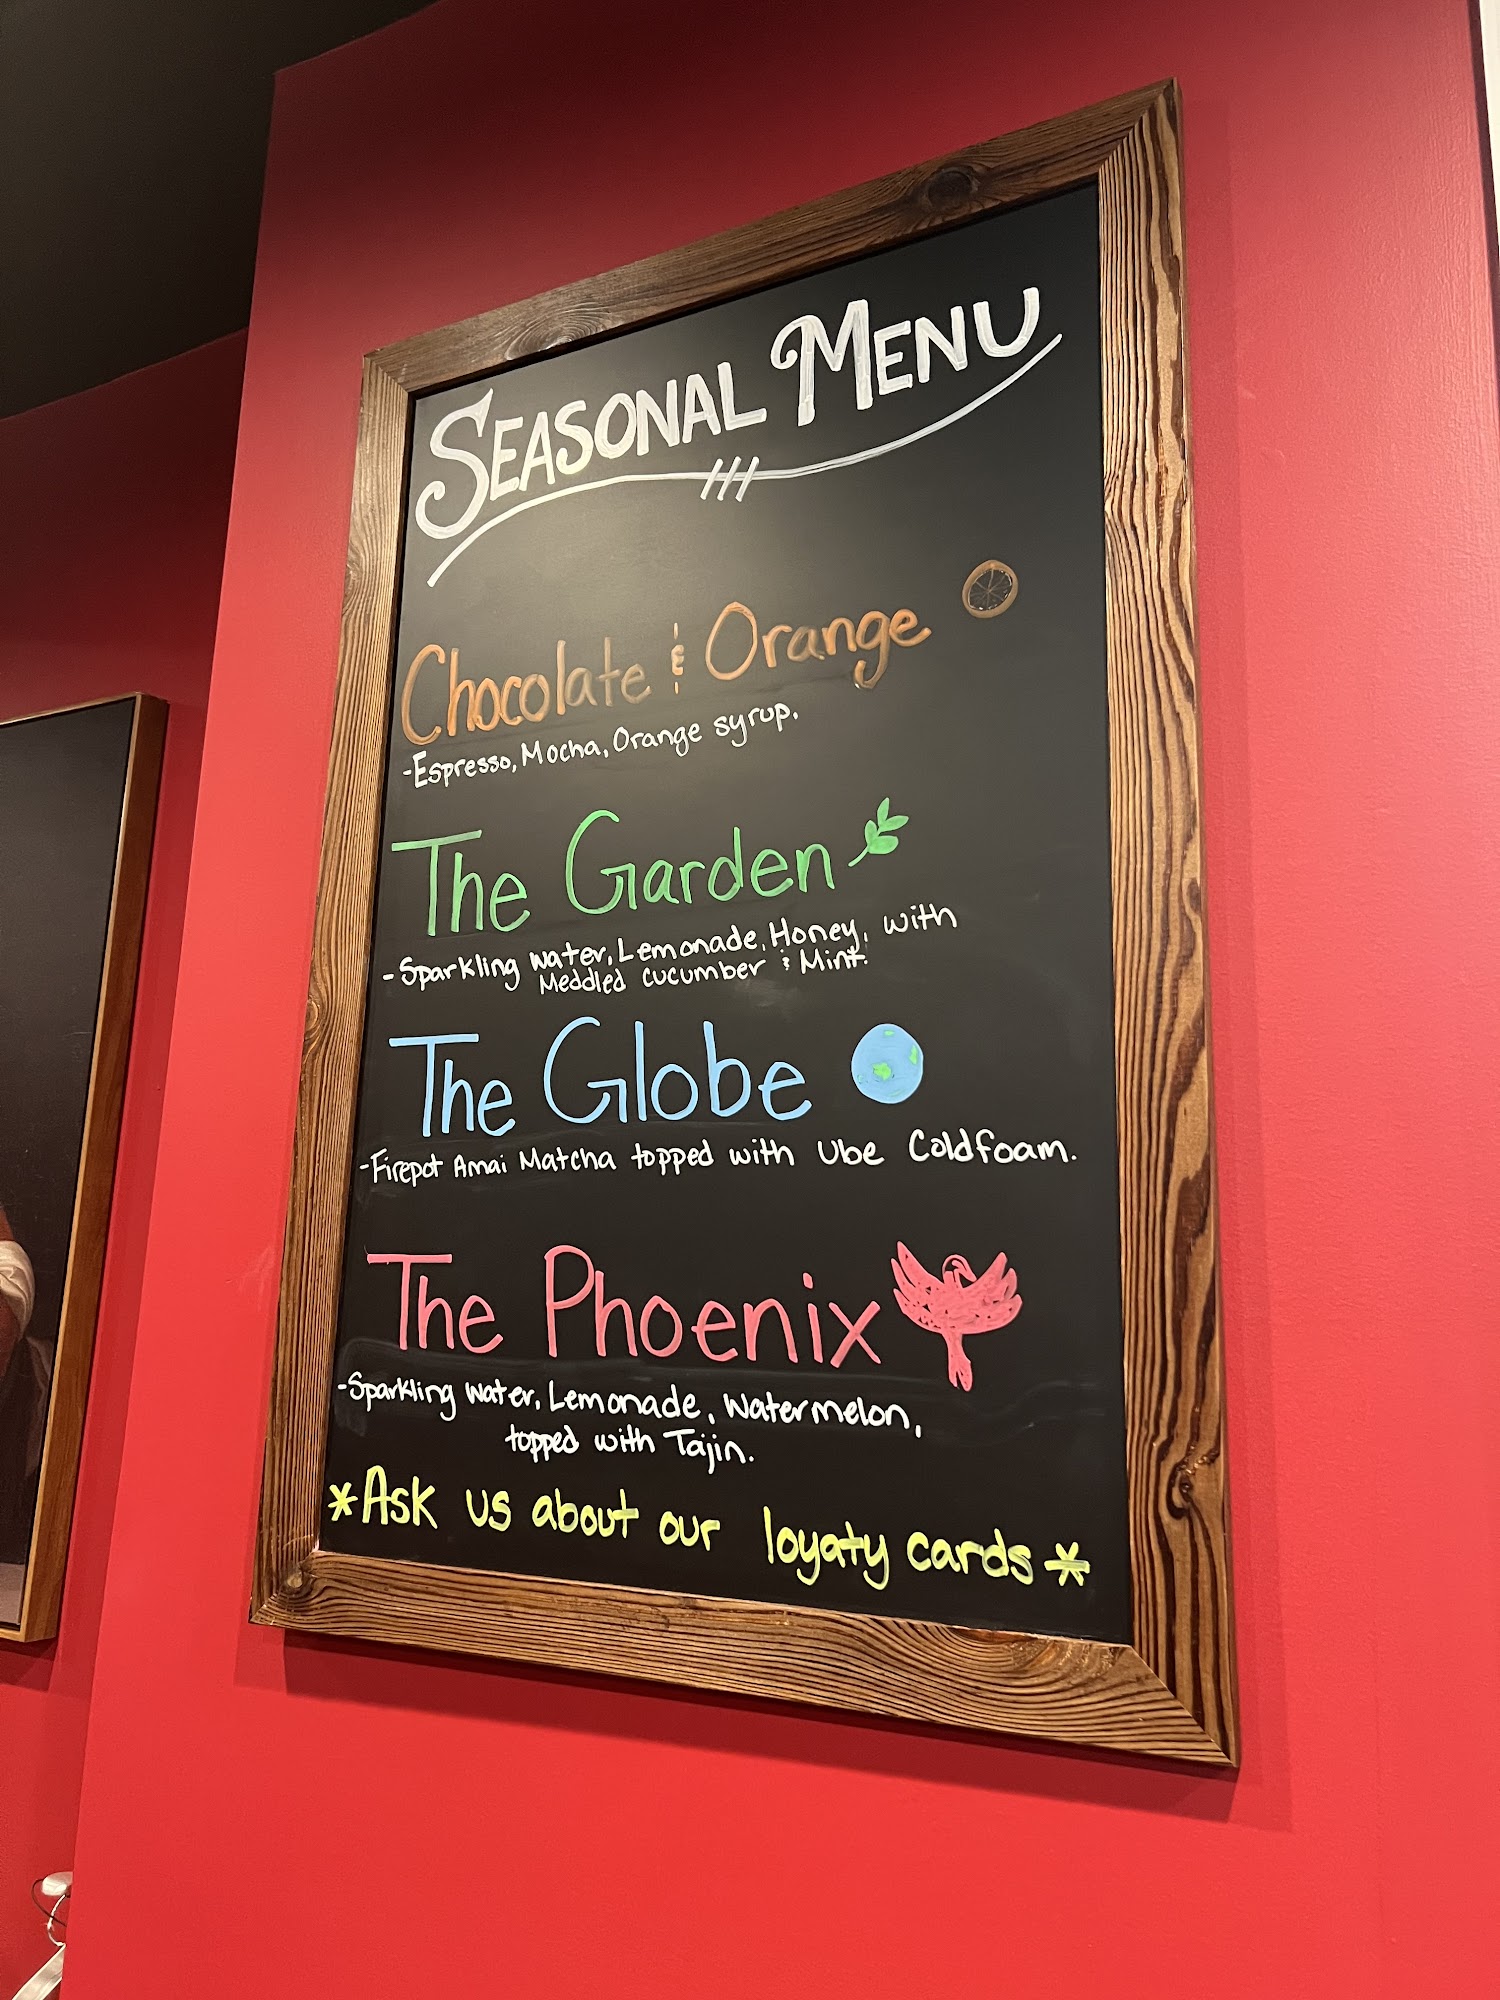 SEASONAL MENU
Chocolate & Orange
-Espresso, Mocha, Orange syrup.
The Garden
-Sparkling water, Lemonade, Honey, with
Meddled cucumber & Mint.
The Globe
-Firepot Amai Matcha topped with Ube Coldfoam.
The Phoenix
-Sparkling water, Lemonade, Watermelon,
topped with Tajin.
*Ask us about our loyalty cards*